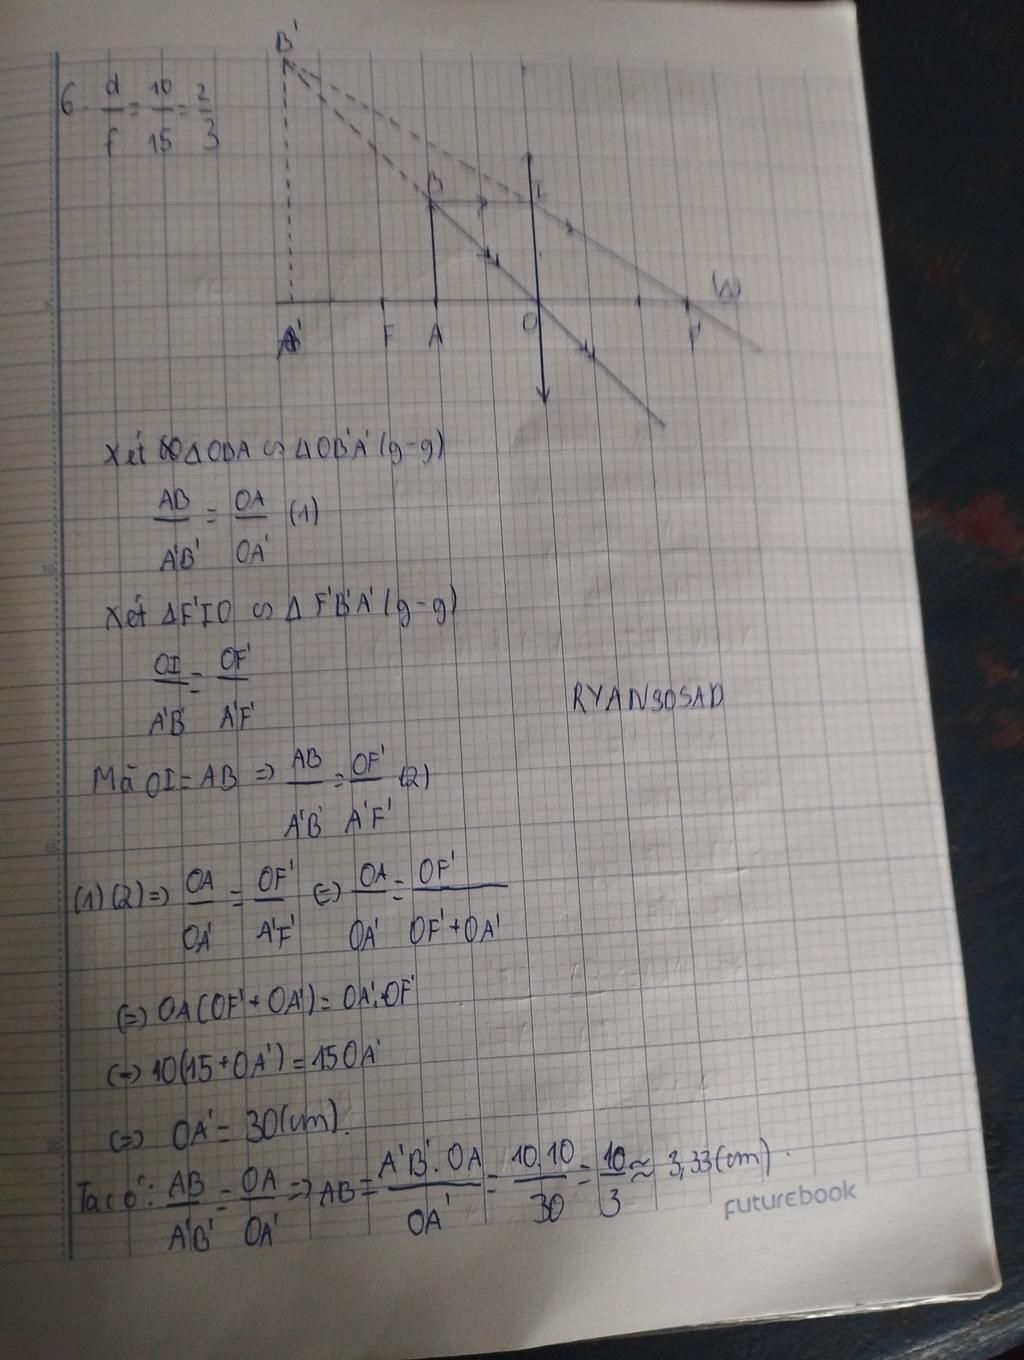 B'
6. d/f = 10/15 = 2/3
B I
(Δ)
A' F A O F'
Xét ΔOBA ∽ ΔOB'A' (g-g)
AB/A'B' = OA/OA' (1)
Xét ΔF'IO ∽ Δ F'B'A' (g-g)
OI/A'B' = OF'/A'F'
RYAN30SAD
Mà OI = AB => AB/A'B' = OF'/A'F' (2)
(1)(2) => OA/OA' = OF'/A'F' (=) OA/OA' = OF'/OF'+OA'
(=) OA(OF' + OA') = OA'.OF'
(=) 10(15+OA') = 15OA'
(=) OA' = 30(cm).
Ta có: AB/A'B' = OA/OA' => AB = A'B'.OA/OA' = 10.10/30 = 10/3 ≈ 3,33(cm).
Futurebook